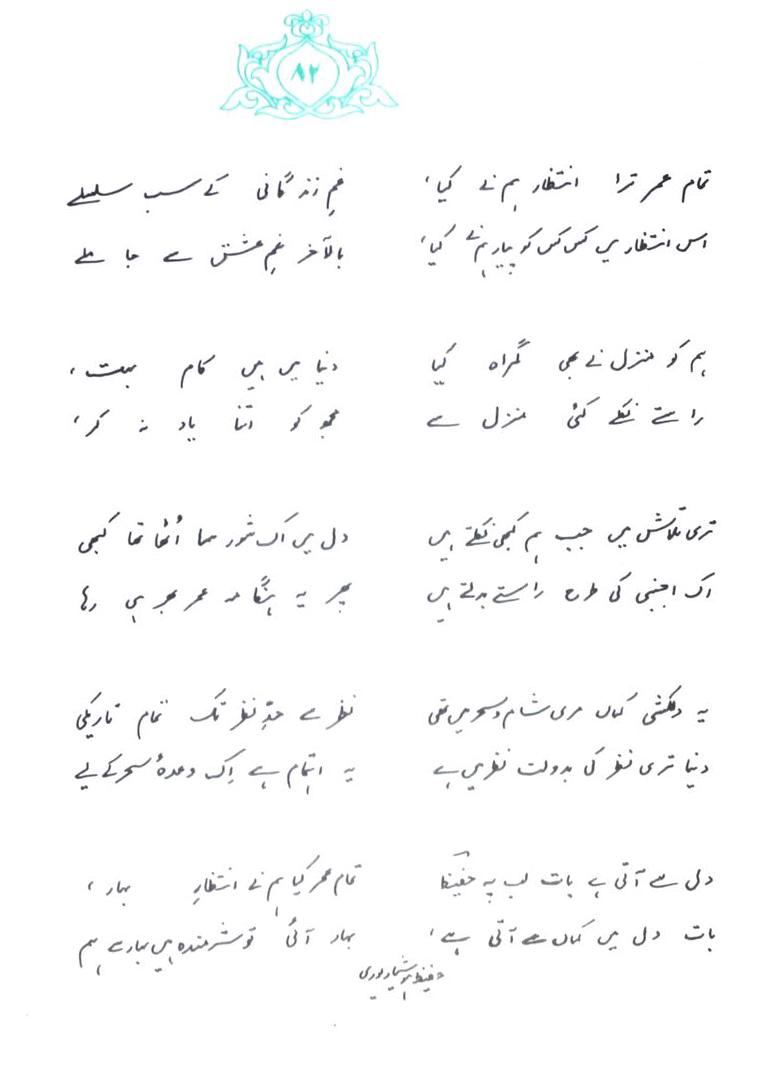 ۸۲
تمام عمر ترا انتظار ہم نے کیا،
اس انتظار میں کس کس کو پیار ہم نے کیا،
غمِ زندگانی کے سب سلسلے
بالآخر غمِ عشق سے جا ملے
ہم کو منزل نے بھی گمراہ کیا
راستے نکلے کئی منزل سے
دنیا میں ہیں کام بہت،
مجھ کو اتنا یاد نہ کر،
تری تلاش میں جب ہم کبھی نکلتے ہیں
اک اجنبی کی طرح راستے بدلتے ہیں
دل میں اک شور سا اُٹھا تھا کبھی
پھر یہ ہنگامہ عمر بھر ہی رہا
یہ دلکشی کہاں مری شام و سحر میں تھی
دنیا تری نظر کی بدولت نظر میں ہے
نظر سے حدِّ نظر تک تمام تاریکی
یہ اہتمام ہے اِک وعدۂ سحر کے لیے
دل سے آتی ہے بات لب پہ حفیظؔ
بات دل میں کہاں سے آتی ہے،
تمام عمر کیا ہم نے انتظارِ بہار،
بہار آئی تو شرمندہ ہیں بہار سے ہم
حفیظ ہوشیارپوری